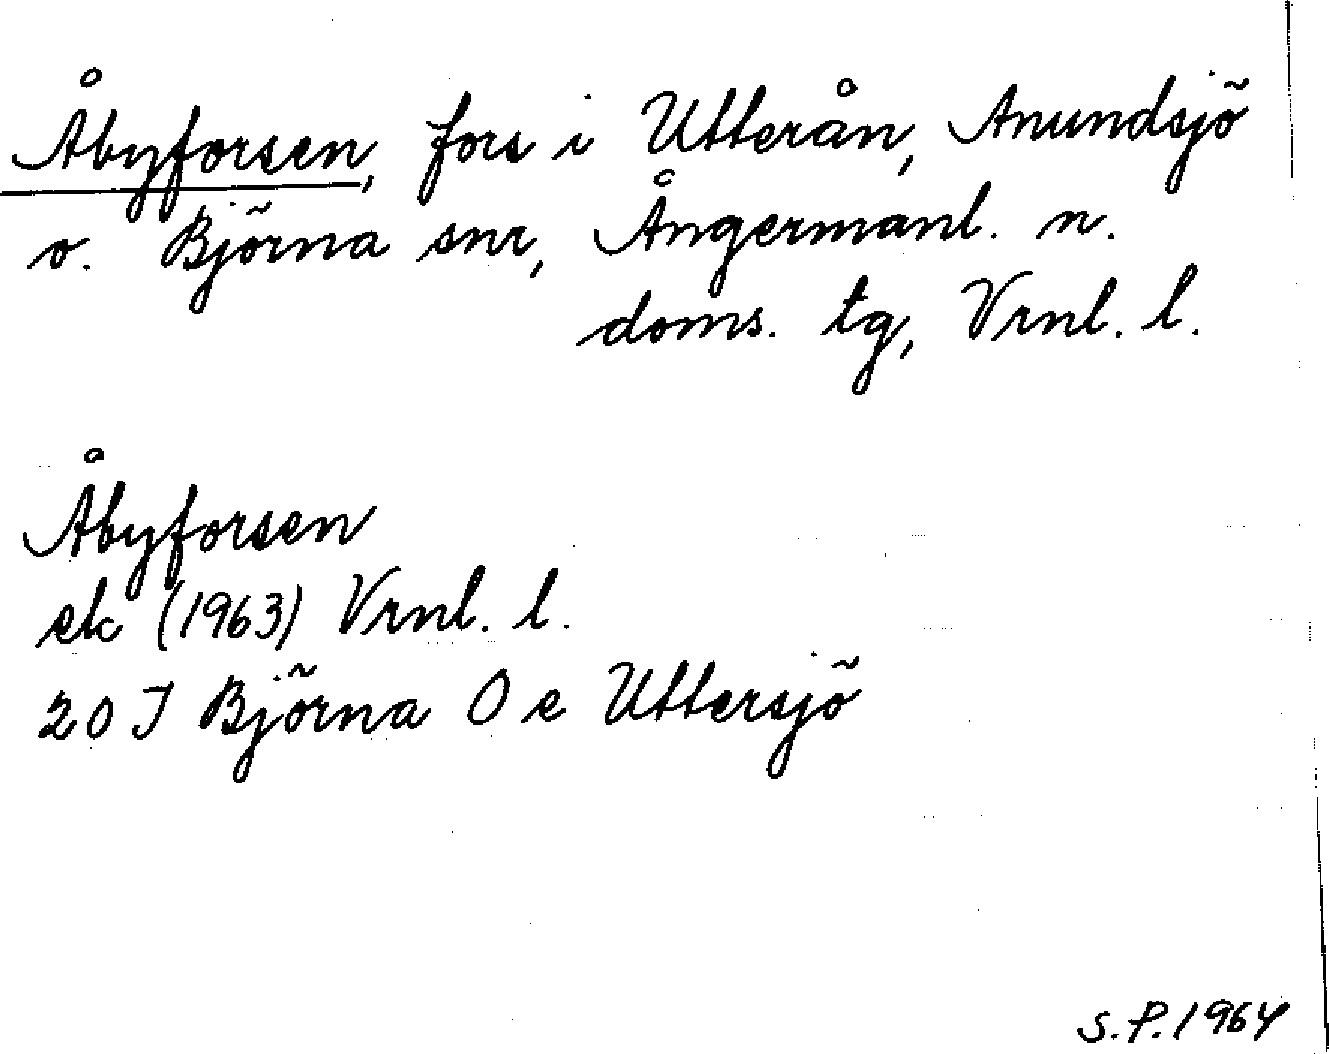 Åbyforsen, fors i Utterån, Anundsjö
o. Björna snr, Ångermanl. n.
doms. tg, Vrnl. l.
Åbyforsen
ek (1963) Vrnl. l.
20 I Björna O e Uttersjö
S.P. 1964